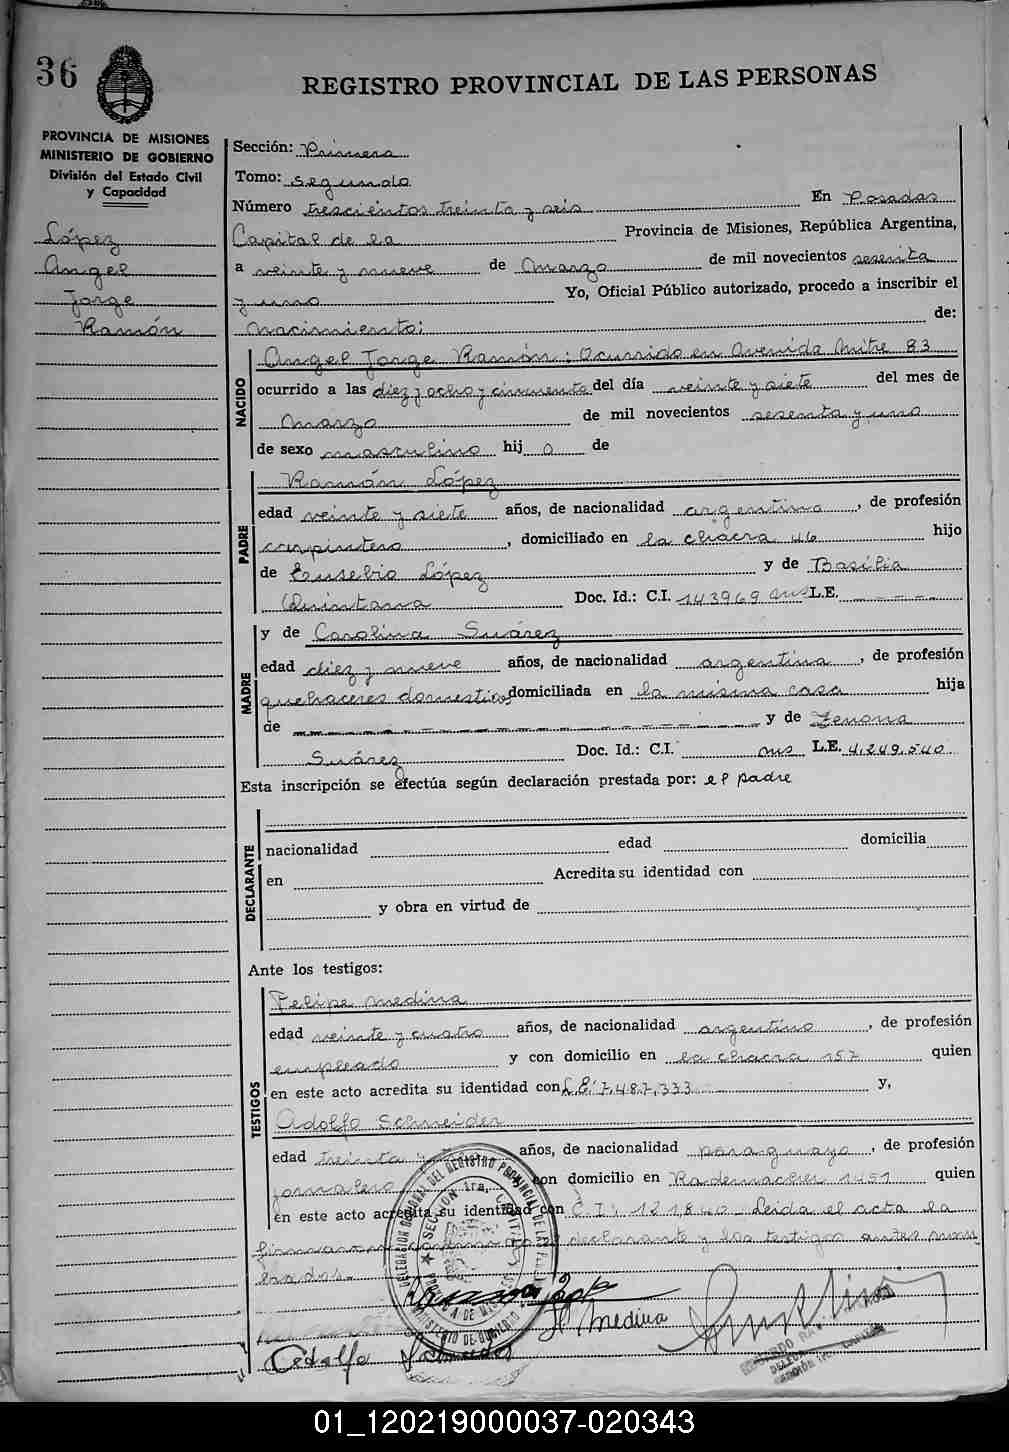 36
REGISTRO PROVINCIAL DE LAS PERSONAS
PROVINCIA DE MISIONES
MINISTERIO DE GOBIERNO
División del Estado Civil
y Capacidad
López
Angel
Jorge
Ramón
Sección: Primera
Tomo: segundo
Número trescientos treinta y seis En Posadas
Capital de la Provincia de Misiones, República Argentina,
a veinte y nueve de Marzo de mil novecientos sesenta
y uno Yo, Oficial Público autorizado, procedo a inscribir el
nacimiento: de:
NACIDO
Angel Jorge Ramón: Ocurrido en Avenida Mitre 83
ocurrido a las diez y ocho y cincuenta del día veinte y siete del mes de
Marzo de mil novecientos sesenta y uno
de sexo masculino hij o de
PADRE
Ramón López
edad veinte y siete años, de nacionalidad argentino, de profesión
carpintero, domiciliado en la chacra 46 hijo
de Eusebio López y de Basilia
Quintana Doc. Id.: C.I. 143969 Mns L.E. - - - -
MADRE
y de Carolina Suárez
edad diez y nueve años, de nacionalidad argentina, de profesión
quehaceres domesticos domiciliada en la misma casa hija
de - - - - - - - - - - - - - y de Zenona
Suárez Doc. Id.: C.I. Mns L.E. 4.249.540
Esta inscripción se efectúa según declaración prestada por: el padre
DECLARANTE
nacionalidad edad domicilia
en Acredita su identidad con
y obra en virtud de
Ante los testigos:
TESTIGOS
Felipe Medina
edad veinte y cuatro años, de nacionalidad argentino, de profesión
empleado y con domicilio en la chacra 157 quien
en este acto acredita su identidad con L.E. 7.487.333 y,
Adolfo Schneider
edad treinta y años, de nacionalidad paraguayo, de profesión
jornalero con domicilio en Rademacher 1451 quien
en este acto acredita su identidad con C.I. 121840 - Leida el acta la
firmaron conmigo el declarante y los testigos antes nom
brados.-
DELEGACION REGIONAL DEL REGISTRO PROVINCIAL DE LAS PERSONAS
SECCION 1ra. CAPITAL
PROVINCIA DE MISIONES
MINISTERIO DE GOBIERNO
F Medina
Adolfo Schneider
01_120219000037-020343